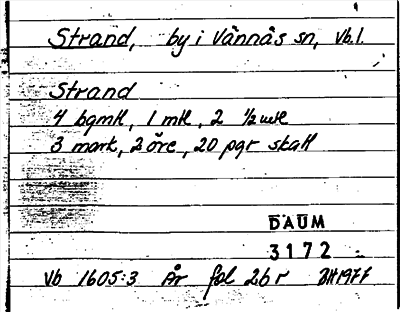 Strand, by i Vännäs sn, Vb.l.
Strand
4 bgmtl, 1 mtl, 2 ½ mtl
3 mark, 2 öre, 20 pgr skatt
DAUM
3172
Vb 1605:3 År fol 26 r BH 1977